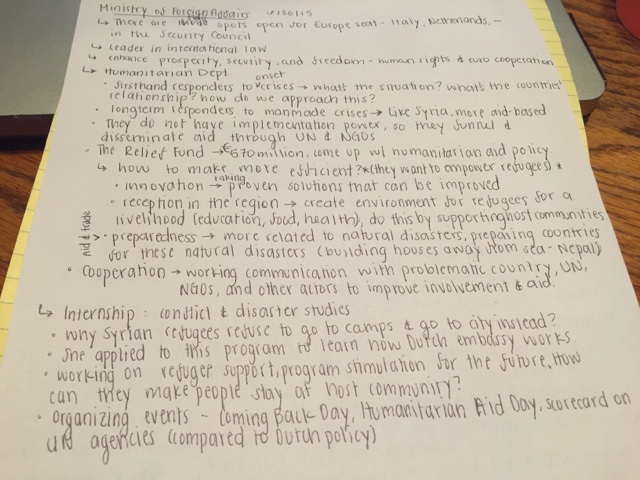 Ministry of Foreign Affairs
↳ There are spots open for Europe seat - Italy, Netherlands, -
in the Security Council
↳ leader in international law
↳ enhance prosperity, security, and freedom - human rights & euro cooperation
↳ Humanitarian Dept
• firsthand responders to onset crises → what's the situation? what's the countries'
relationship? how do we approach this?
• longterm responders to manmade crises → like Syria, more aid-based
• They do not have implementation power, so they funnel &
disseminate aid through UN & NGOs
• The Relief Fund → €570 million, come up w/ humanitarian aid policy
↳ how to make more efficient? *(they want to empower refugees)*
• innovation → taking proven solutions that can be improved
• reception in the region → create environment for refugees for a
livelihood (education, food, health), do this by supporting host communities
aid & trade
> • preparedness → more related to natural disasters, preparing countries
for these natural disasters (building houses away from sea - Nepal)
• cooperation → working communication with problematic country, UN,
NGOs, and other actors to improve involvement & aid.
↳ Internship: conflict & disaster studies
• why Syrian refugees refuse to go to camps & go to city instead?
• she applied to this program to learn how Dutch embassy works
• working on refugee support, program stimulation for the future. How
can they make people stay at host community?
• organizing events - Coming Back Day, Humanitarian Aid Day, scorecard on
UN agencies (compared to Dutch policy)